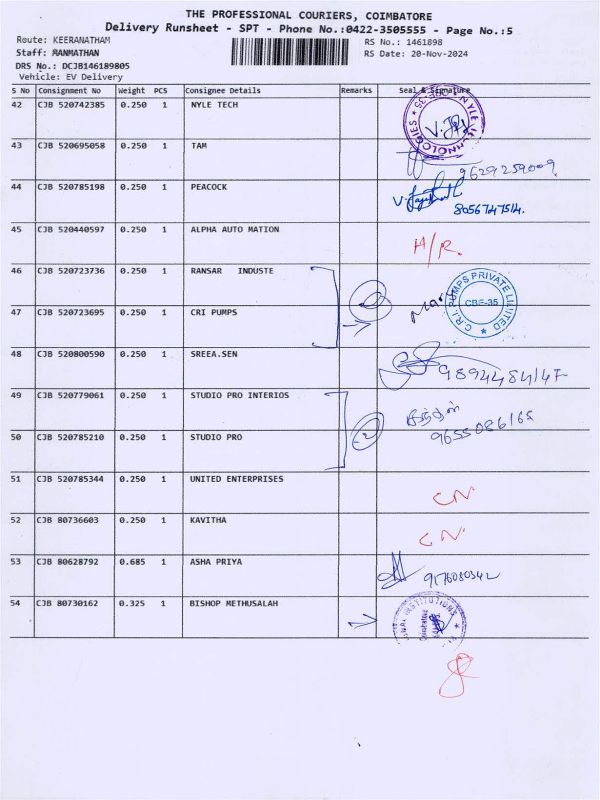 THE PROFESSIONAL COURIERS, COIMBATORE
Delivery Runsheet - SPT - Phone No.:0422-3505555 - Page No.:5
Route: KEERANATHAM
RS No.: 1461898
Staff: MANMATHAN
RS Date: 20-Nov-2024
DRS No.: DCJB146189805
Vehicle: EV Delivery
S No Consignment No Weight PCS Consignee Details Remarks Seal & Signature
42 CJB 520742385 0.250 1 NYLE TECH
43 CJB 520695058 0.250 1 TAM 9629259009
44 CJB 520785198 0.250 1 PEACOCK 8056747514.
45 CJB 520440597 0.250 1 ALPHA AUTO MATION H/R.
46 CJB 520723736 0.250 1 RANSAR INDUSTE
C.R.I. PUMPS PRIVATE LIMITED
CBE-35
47 CJB 520723695 0.250 1 CRI PUMPS
48 CJB 520800590 0.250 1 SREEA.SEN
49 CJB 520779061 0.250 1 STUDIO PRO INTERIOS
9655086165
50 CJB 520785210 0.250 1 STUDIO PRO
51 CJB 520785344 0.250 1 UNITED ENTERPRISES CN
52 CJB 80736603 0.250 1 KAVITHA CN.
53 CJB 80628792 0.685 1 ASHA PRIYA 9176080342
54 CJB 80730162 0.325 1 BISHOP METHUSALAH